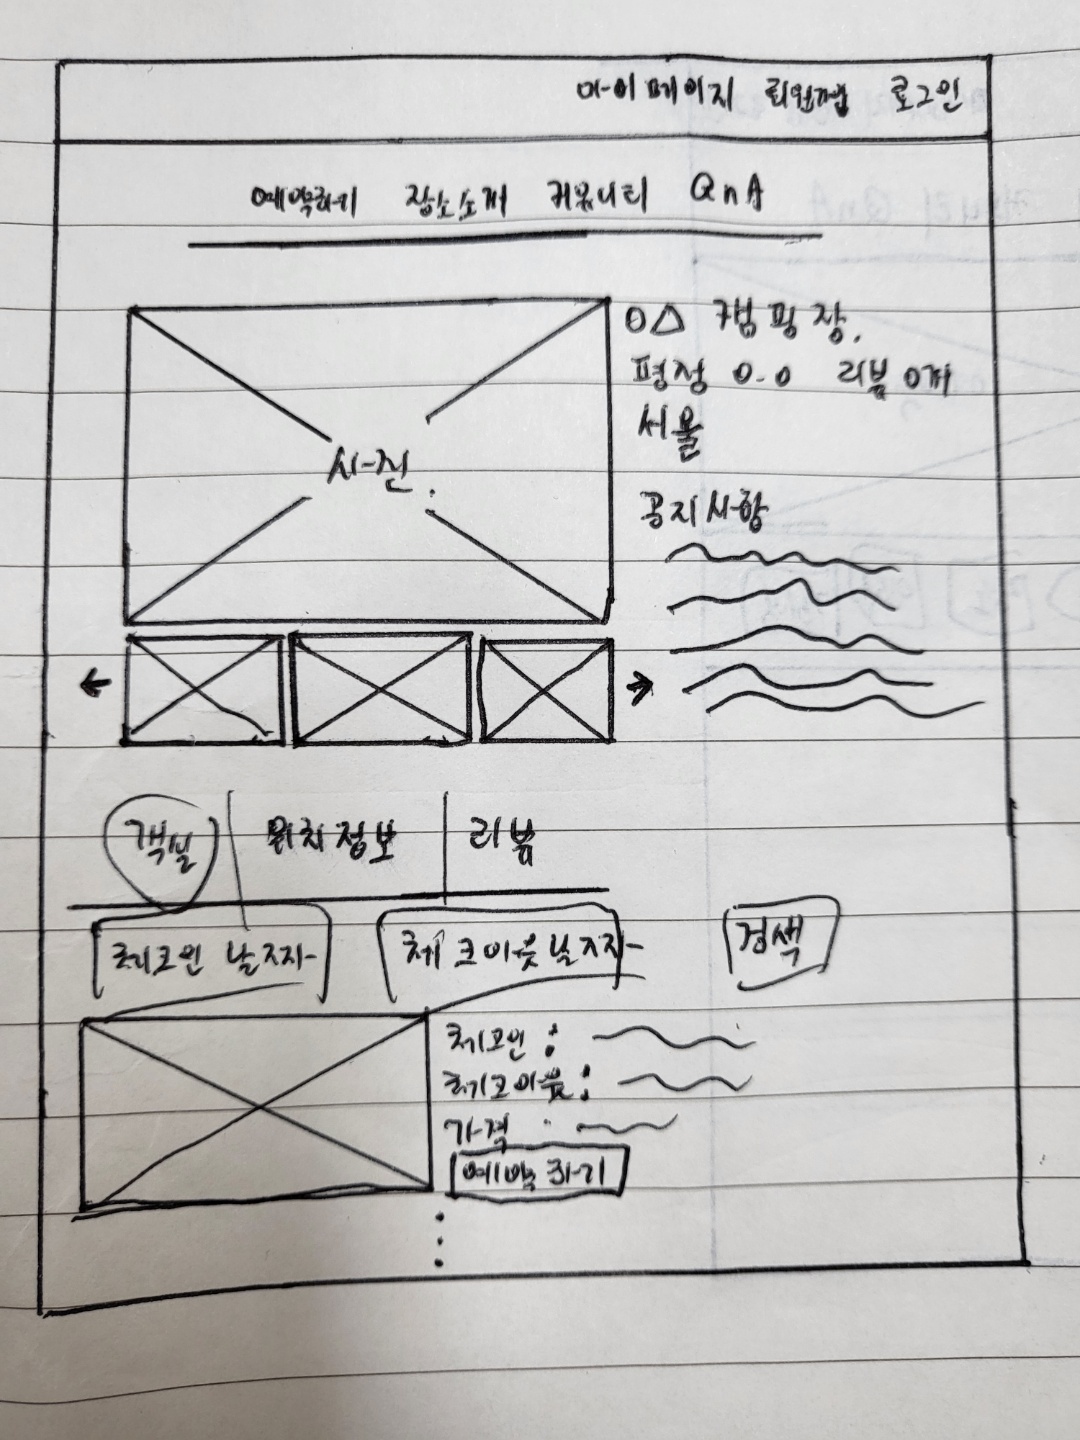 마이페이지 회원가입 로그인
예약하기 장소소개 커뮤니티 QnA
O△ 캠핑장.
평점 0.0 리뷰 0개
서울
사진
공지사항
← →
객실 위치정보 리뷰
체크인 날짜 체크아웃날짜 검색
체크인 :
체크아웃 :
가격 :
예약하기